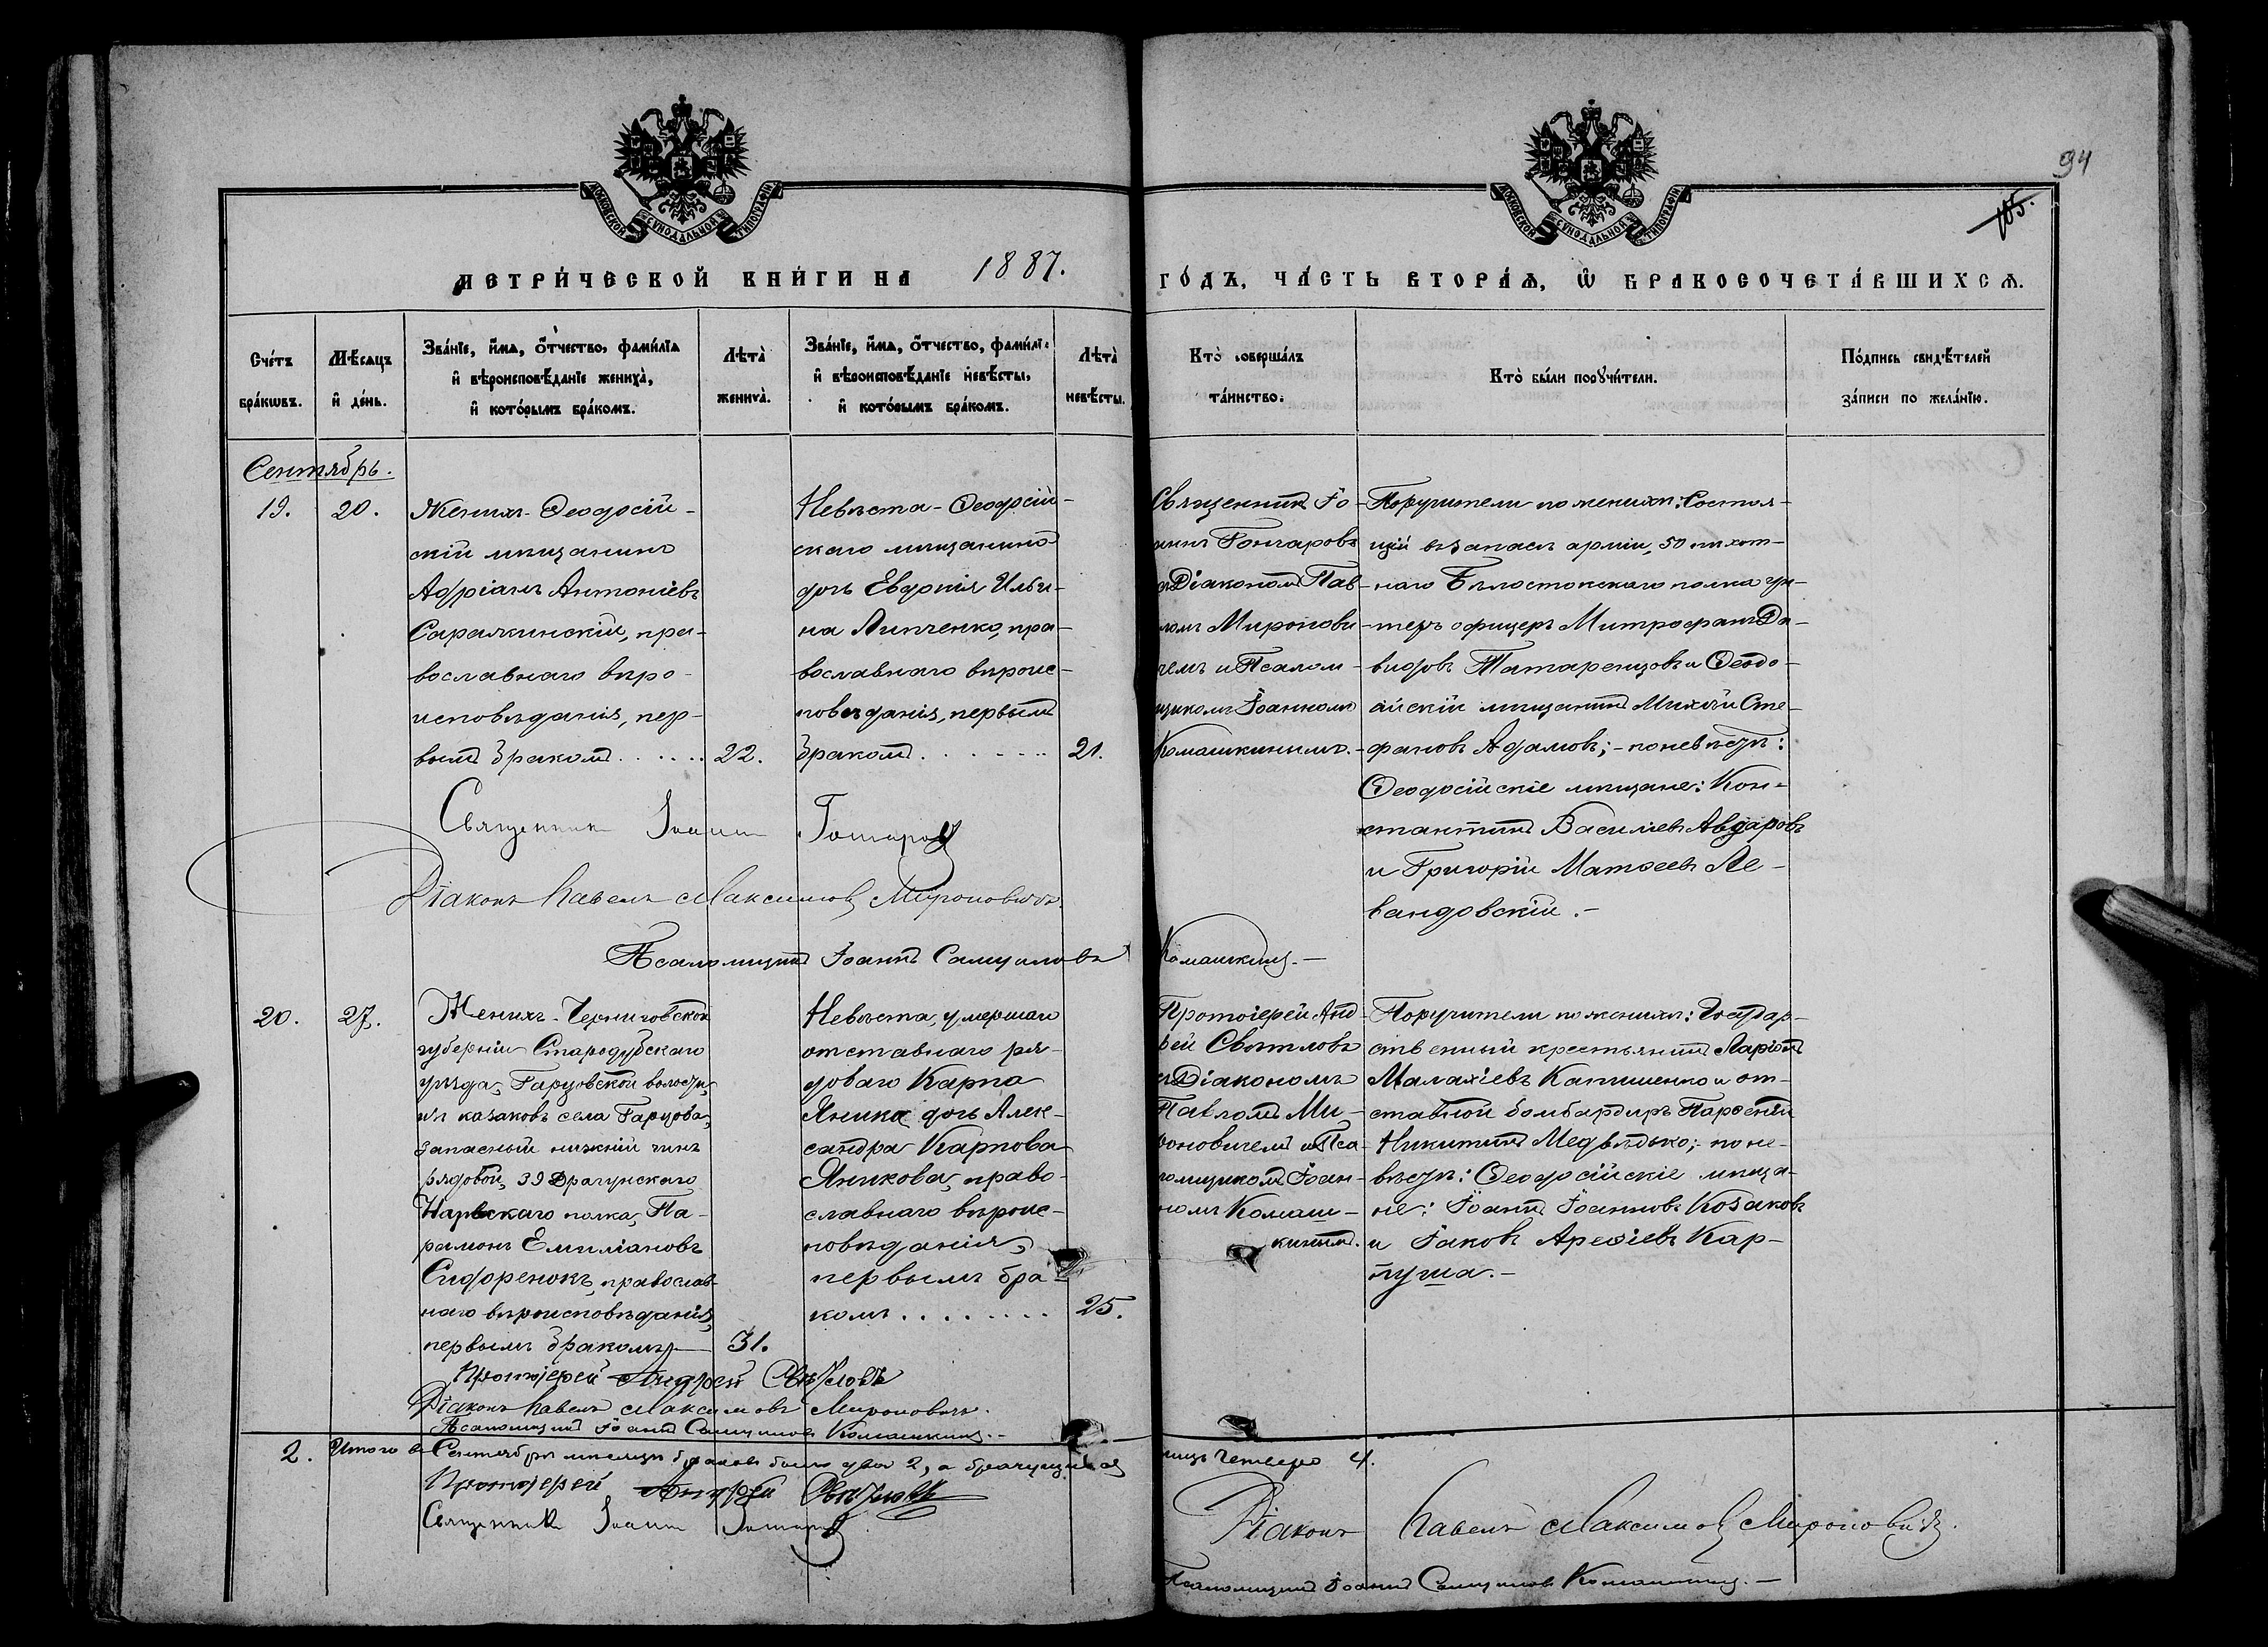 94
105.
МОСКОВСКОЙ СѴНОДАЛЬНОЙ ТИПОГРАФІИ
МОСКОВСКОЙ СѴНОДАЛЬНОЙ ТИПОГРАФІИ
МЕТРИ́ЧЕСКОЙ КНИ́ГИ НА 1887. ГО́ДЪ, ЧА́СТЬ ВТОРА́Ѧ, Ѡ҆ БРАКОСОЧЕТА́ВШИХСѦ.
Сче́тъ бра́кѡвъ.
Мѣ́сѧцъ и҆ де́нь.
Зва́нїе, и҆́мѧ, ѻ҆́тчество, фами́лїѧ и҆ вѣроисповѣ́данїе жениха̀, и҆ кото́рымъ бра́комъ.
Лѣта̀ жениха̀.
Зва́нїе, и҆́мѧ, ѻ҆́тчество, фами́лїѧ и҆ вѣроисповѣ́данїе невѣ́сты, и҆ кото́рымъ бра́комъ.
Лѣта̀ невѣ́сты.
Кто̀ соверша́лъ та́инство.
Кто̀ бы́ли порꙋчи́тели.
По́дпись свидѣ́телей за́писи по жела́нїю.
Сентябрь.
19.
20.
Женихъ - Ѳеодосій-
скій мѣщанинъ
Адріанъ Антоніевъ
Саражинскій, пра-
вославнаго вѣро-
исповѣданія, пер-
вымъ бракомъ......
22.
Невѣста - Ѳеодосій-
скаго мѣщанина
дочь Евдокія Ильи-
на Липченко, пра-
вославнаго вѣроис-
повѣданія, первымъ
бракомъ.......
21.
Священникъ Іо-
аннъ Гончаровъ
съ Діакономъ Пав-
ломъ Миронови-
чемъ и Псалом-
щикомъ Іоанномъ
Комашкинымъ.
Поручители по женихѣ: Состоя-
щій въ запасѣ арміи, 50 пѣхот-
наго Бѣлостокскаго полка ун-
теръ офицеръ Митрофанъ Да-
видовъ Татаренцовъ и Ѳеодо-
сійскій мѣщанинъ Михаилъ Сте-
фановъ Адамовъ; - по невѣстѣ:
Ѳеодосійскіе мѣщане: Кон-
стантинъ Василіевъ Авдаровъ
и Григорій Матѳеевъ Ле-
вандовскій.-
Священникъ Іоаннъ Гончаровъ
Діаконъ Павелъ Максимовъ Мироновичъ.
Псаломщикъ Іоаннъ Самуиловъ Комашкинъ.-
20.
27.
Женихъ - Черниговской
губерніи Стародубскаго
уѣзда, Гарцовской волости,
изъ казаковъ села Гарцова,
запасный нижній чинъ
рядовой, 39 Драгунскаго
Нарвскаго полка, Па-
рамонъ Емиліановъ
Сидоренокъ, православ-
наго вѣроисповѣданія,
первымъ бракомъ
31.
Невѣста, умершаго
отставнаго ря-
доваго Карпа
Яника дочь Алек-
сандра Карпова
Яникова, право-
славнаго вѣроис-
повѣданія,
первымъ бра-
комъ........
25.
Протоіерей Анд-
рей Свѣтловъ
съ Діакономъ
Павломъ Ми-
роновичемъ и Пса-
ломщикомъ Іоан-
номъ Комаш-
кинымъ.
Поручители по женихѣ: Государ-
ственный крестьянинъ Ларіонъ
Малахіевъ Капишенко и от-
ставной бомбардиръ Парѳеній
Никитинъ Медвѣдько; - по не-
вѣстѣ: Ѳеодосійскіе мѣща-
не: Іоаннъ Іоанновъ Козаковъ
и Іаковъ Арефіевъ Кар-
пуша.-
Протоіерей Андрей Свѣтловъ
Діаконъ Павелъ Максимовъ Мироновичъ.
Псаломщикъ Іоаннъ Самуиловъ Комашкинъ.-
2. Итого въ Сентябрѣ мѣсяцѣ браковъ было два 2, а брачущихся лицъ четверо 4.
Протоіерей Андрей Свѣтловъ
Священникъ Іоаннъ Гончаровъ
Діаконъ Павелъ Максимовъ Мироновичъ.
Псаломщикъ Іоаннъ Самуиловъ Комашкинъ.-